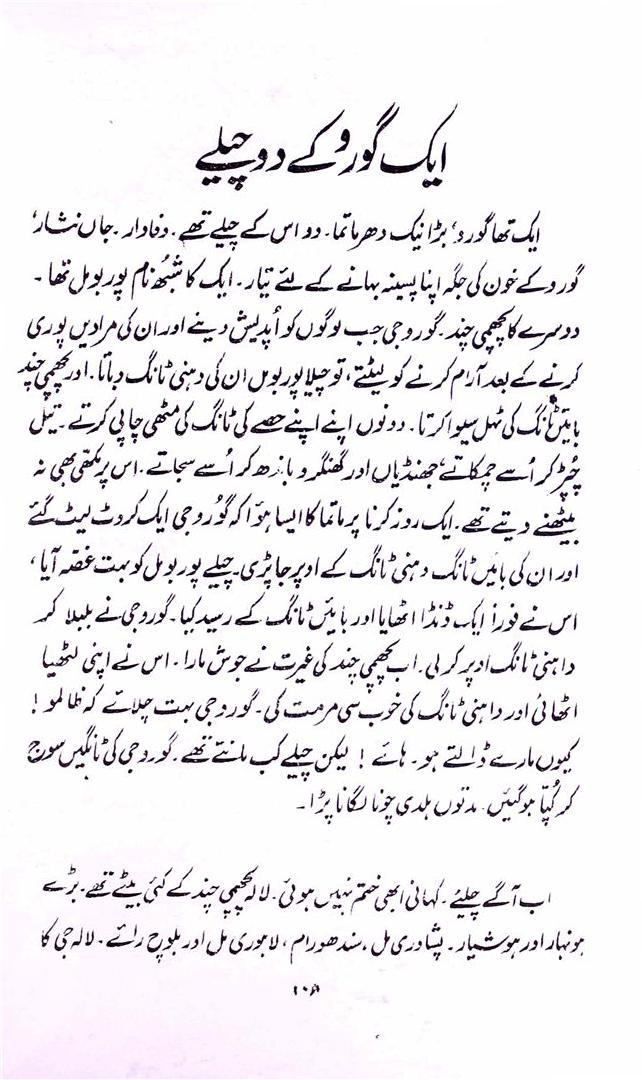 ایک گورو کے دو چیلے
ایک تھا گورو، بڑا نیک دھرماتما۔ دو اس کے چیلے تھے۔ وفادار۔ جاں نثار،
گورو کے خون کی جگہ اپنا پسینہ بہانے کے لئے تیار۔ ایک کا شبھ نام پوربومل تھا۔
دوسرے کا پچھمی چند۔ گورو جی جب لوگوں کو اُپدیش دینے اور ان کی مرادیں پوری
کرنے کے بعد آرام کرنے کو لیٹتے، تو چیلا پوربومل ان کی دہنی ٹانگ دباتا۔ اور پچھمی چند
بائیں ٹانگ کی ٹہل سیوا کرتا۔ دونوں اپنے اپنے حصے کی ٹانگ کی مٹھی چاپی کرتے۔ تیل
چپڑ کر اُسے چمکاتے، جھنڈیاں اور گھنگرو باندھ کر اُسے سجاتے۔ اس پر مکھی بھی نہ
بیٹھنے دیتے تھے۔ ایک روز کرنا پرماتما کا ایسا ہوا کہ گورو جی ایک کروٹ لیٹ گئے
اور ان کی بائیں ٹانگ دہنی ٹانگ کے اوپر جا پڑی۔ چیلے پوربومل کو بہت غصہ آیا،
اس نے فوراً ایک ڈنڈا اٹھایا اور بائیں ٹانگ کے رسید کیا۔ گورو جی نے بلبلا کر
داہنی ٹانگ اوپر کر لی۔ اب پچھمی چند کی غیرت نے جوش مارا۔ اس نے اپنی لٹھیا
اٹھائی اور داہنی ٹانگ کی خوب سی مرمت کی۔ گورو جی بہت چلائے کہ ظالمو!
کیوں مارے ڈالتے ہو۔ ہائے! لیکن چیلے کب مانتے تھے۔ گورو جی کی ٹانگیں سوج
کر کُپّا ہوگئیں۔ مدتوں ہلدی چونا لگانا پڑا۔
اب آگے چلیئے۔ کہانی ابھی ختم نہیں ہوئی۔ لالہ پچھمی چند کے کئی بیٹے تھے۔ بڑے
ہونہار اور ہوشیار۔ پشاوری مل، سندھورام، لاہوری مل اور بلوچ رائے۔ لالہ جی کا